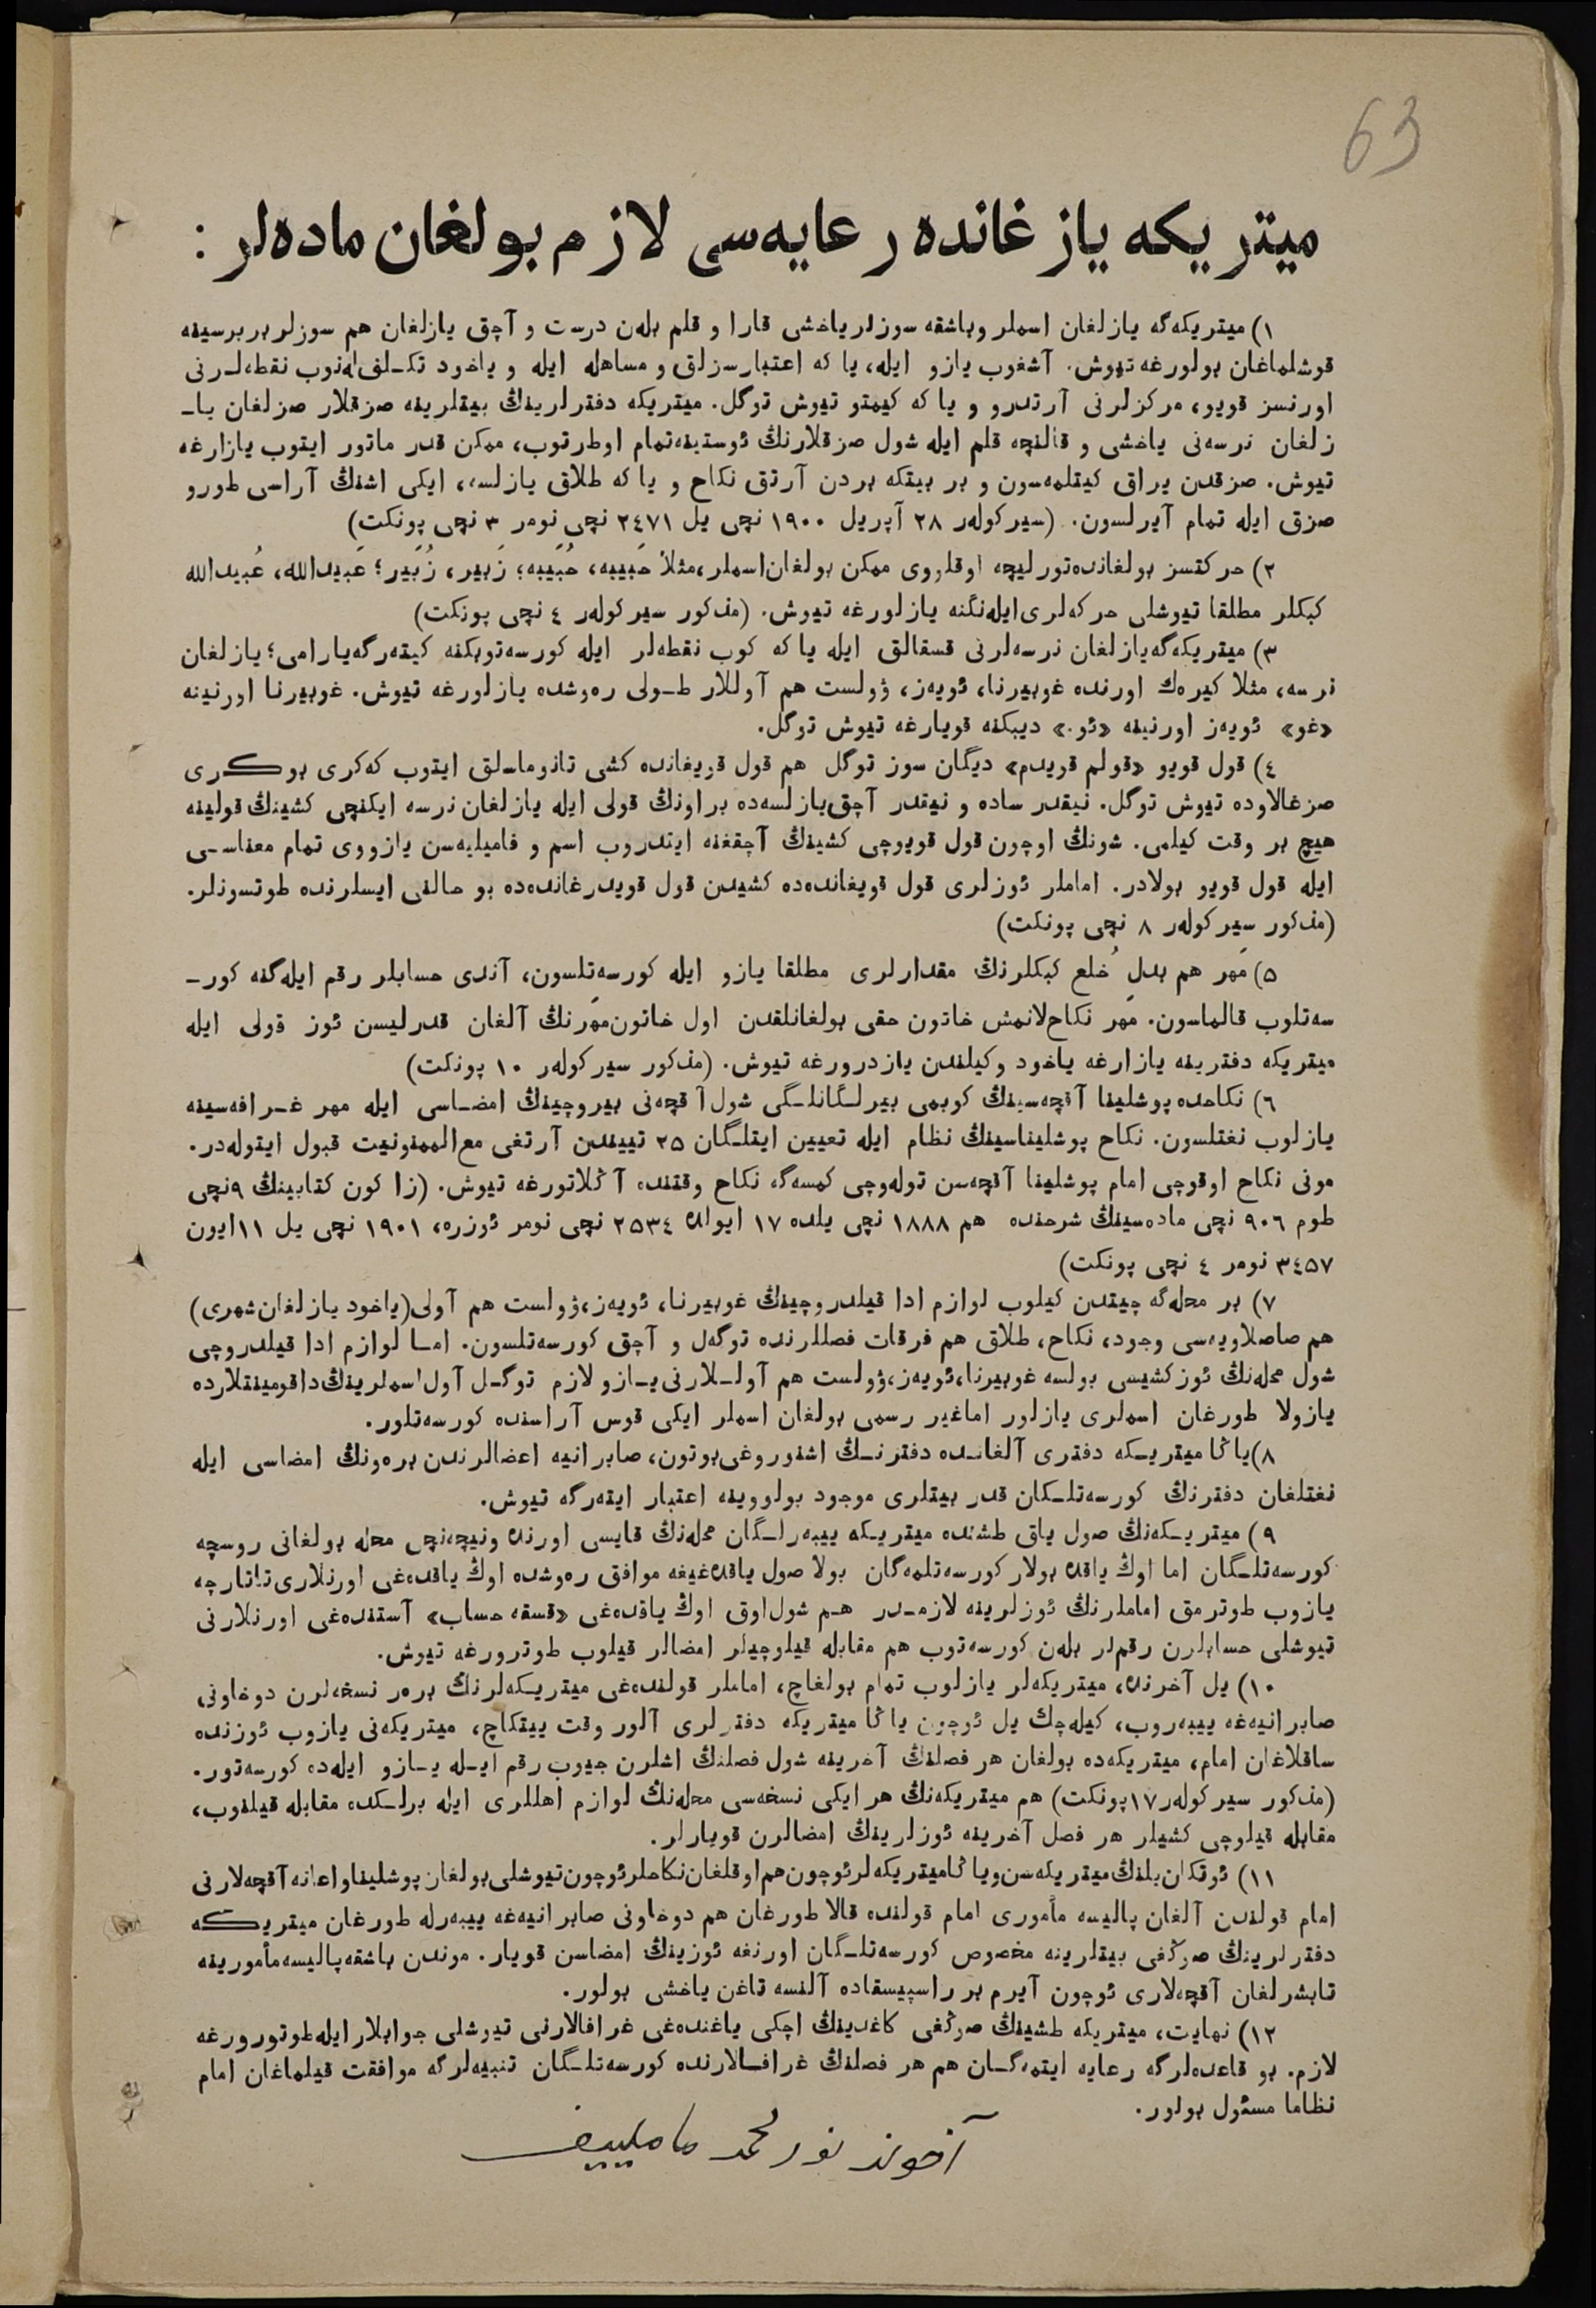 63
ميتريكه يازغانده رعايه‌سى لازم بولغان ماده‌لر :
١) ميتريكه‌گه يازلغان اسملر وباشقه سوزلر ياخشى قارا و قلم بله‌ن درست و آچق يازلغان هم سوزلر بربرسينه
قوشلماغان بولورغه تيوش. آشغوب يازو ايله، يا كه اعتبارسزلق و مساهله ايله و ياخود تكـلف له‌نوب نقطه‌لـرنى
اورنسز قويو، مركزلرنى آرتدرو و يا كه كيمتو تيوش توگل. ميتريكه دفترلرينڭ بيتلرينه صزقلار صزلغان يا-
زلغان نرسه‌نى ياخشى و قالنچه قلم ايله شول صزقلارنڭ ئوستينه تمام اوطرتوب، ممكن قدر ماتور ايتوب يازارغه
تيوش. صزقدن يراق كيتلمه‌سون و بر بيتكه بردن آرتق نكاح و يا كه طلاق يازلسه، ايكى اشنڭ آراسى طورو
صزق ايله تمام آيرلسون. (سيركولەر ٢٨ آپريل ١٩٠٠ نچى يل ٢٤٧١ نچى نومر ٣ نچى پونكت)
٢) حركتسز بولغانده تورليچه اوقلووى ممكن بولغان اسملر، مثلاً حَبيبه، حُبَيبه؛ زَبير، زُبَير؛ عَبيدالله، عُبيدالله
كبكلر مطلقا تيوشلى حركه‌لرى ايله‌نگنه يازلورغه تيوش. (مذكور سيركولەر ٤ نچى پونكت)
٣) ميتريكه‌گه يازلغان نرسه‌لرنى قسقالق ايله يا كه كوب نقطه‌لر ايله كورسه‌توبكنه كيته‌رگه يارامى؛ يازلغان
نرسه، مثلا كيره‌ك اورنده غوبيرنا، ئويه‌ز، ۋولست هم آوللار طـولى ره‌وشده يازلورغه تيوش. غوبيرنا اورنينه
«غو» ئويه‌ز اورنينه «ئو.» ديبكنه قويارغه تيوش توگل.
٤) قول قويو «قولم قويدم» ديگان سوز توگل هم قول قويغانده كشى تانوماسـلق ايتوب كه‌كرى بوكـرى
صزغالاوده تيوش توگل. نيقدر ساده و نيقدر آچق يازلسه‌ده براونڭ قولى ايله يازلغان نرسه ايكنچى كشينڭ قولينه
هيچ بر وقت كيلمى. شونڭ اوچون قول قويوچى كشينڭ آچقغنه ايتدروب اسم و فاميليه‌سن يازووى تمام معناسـى
ايله قول قويو بولادر. اماملر ئوزلرى قول قويغانده‌ده كشيدن قول قويدرغانده‌ده بو حالنى ايسلرنده طوتسونلر.
(مذكور سيركولەر ٨ نچى پونكت)
٥) مَهر هم بدل خُلع كبكلرنڭ مقدارلرى مطلقا يازو ايله كورسه‌تلسون، آندى حسابلر رقم ايله‌گنه كور-
سه‌تلوب قالماسون. مَهر نكاح‌لانمش خاتون حقى بولغانلقدن اول خاتون مَهرنڭ آلغان قدرليسن ئوز قولى ايله
ميتريكه دفترينه يازارغه ياخود وكيلندن يازدرورغه تيوش. (مذكور سيركولەر ١٠ پونكت)
٦) نكاحده پوشلينا آقچه‌سينڭ كوبمى بيرلـگانلـگى شول آقچه‌نى بيروچينڭ امضـاسى ايله مهر غـرافه‌سينه
يازلوب نغتلسون. نكاح پوشليناسينڭ نظام ايله تعيين ايتلـگان ٢٥ تييندن آرتغى مع الممنونيت قبول ايتوله‌در.
مونى نكاح اوقوچى امام پوشلينا آقچه‌سن توله‌وچى كمسه‌گه نكاح وقتنده آڭلاتورغه تيوش. (زاكون كتابينڭ ٩نچى
طوم ٩٠٦ نچى ماده‌سينڭ شرحنده هم ١٨٨٨ نچى يلده ١٧ ايولده ٢٥٣٤ نچى نومر ئوزره، ١٩٠١ نچى يل ١١ ايون
٣٤٥٧ نومر ٤ نچى پونكت)
٧) بر محله‌گه چيتدن كيلوب لوازم ادا قيلدروچينڭ غوبيرنا، ئويه‌ز، ۋولست هم آولى (ياخود يازلغان شهرى)
هم صاصلاويه‌سى وجود، نكاح، طلاق هم فرقات فصللرنده توگه‌ل و آچق كورسه‌تلسون. امـا لوازم ادا قيلدروچى
شول محله‌نڭ ئوز كشيسى بولسه غوبيرنا، ئويه‌ز، ۋولست هم آولـلارنى يـازو لازم توگـل آول اسملرينڭ داقومينتلارده
يازولا طورغان اسملرى يازلور اما غير رسمى بولغان اسملر ايكى قوس آراسنده كورسه‌تلور.
٨) ياڭا ميتريـكه دفترى آلغانـده دفترنـڭ اشنوروغى بوتون، صابرانيه اعضالرندن بره‌ونڭ امضاسى ايله
نغتلغان دفترنڭ كورسه‌تلـگان قدر بيتلرى موجود بولووينه اعتبار ايته‌رگه تيوش.
٩) ميتريـكه‌نڭ صول ياق طشنده ميتريـكه ييبه‌رلـگان محله‌نڭ قايسى اورنده ونيچه‌نچى محله بولغانى روسچه
كورسه‌تلـگان اما اوڭ ياقده بولار كورسه‌تلمه‌گان بولا صول ياقده‌غيغه موافق ره‌وشده اوڭ ياقده‌غى اورنلارى تاتارچه
يازوب طوترمق اماملرنڭ ئوزلرينه لازمـدر هـم شول اوق اوڭ ياقده‌غى «قسقه حساب» آستنده‌غى اورنلارنى
تيوشلى حسابلرن رقملر بله‌ن كورسه‌توب هم مقابله قيلوچيلر امضالر قيلوب طوترورغه تيوش.
١٠) يل آخرنده، ميتريكه‌لر يازلوب تمام بولغاچ، اماملر قولنده‌غى ميتريـكه‌لرنڭ بره‌ر نسخه‌لرن دوخاونى
صابرانيه‌غه ييبه‌روب، كيله‌چك يل ئوچون ياڭا ميتريكه دفترلرى آلور وقت ييتكاچ، ميتريكه‌نى يازوب ئوزنده
ساقلاغان امام، ميتريكه‌ده بولغان هر فصلنڭ آخرينه شول فصلنڭ اشلرن جيوب رقم ايـله يـازو ايله‌ده كورسه‌تور.
(مذكور سيركولەر ١٧ پونكت) هم ميتريكه‌نڭ هر ايكى نسخه‌سى محله‌نڭ لوازم اهللرى ايله برلـكده مقابله قيلنوب،
مقابله قيلوچى كشيلر هر فصل آخرينه ئوزلرينڭ امضالرن قويارلر.
١١) ئوتكان يلنڭ ميتريكه‌سن وياڭا ميتريكه‌لر ئوچون هم اوقلغان نكاحلر ئوچون تيوشلى بولغان پوشلينا واعانه آقچه‌لارنى
امام قولندن آلغان پاليسه مأمورى امام قولنده قالا طورغان هم دوخاونى صابرانيه‌غه ييبه‌رله طورغان ميتريـكه
دفترلرينڭ صوڭغى بيتلرينه مخصوص كورسه‌تلـگان اورنغه ئوزينڭ امضاسن قويار. موندن باشقه پاليسه مأمورينه
تابشرلغان آقچه‌لارى ئوچون آيرم بر راسپيسقاده آلنسه تاغن ياخشى بولور.
١٢) نهايت، ميتريكه طشينڭ صوڭغى كاغدينڭ اچكى ياغنده‌غى غرافالارنى تيوشلى جوابلار ايله طوتورورغه
لازم. بو قاعده‌لرگه رعايه ايتمه‌گـان هم هر فصلنڭ غرافـالارنده كورسه‌تلـگان تنبيه‌لرگه موافقت قيلماغان امام
نظاما مسئول بولور.
آخوند نورمحمد ماملييف